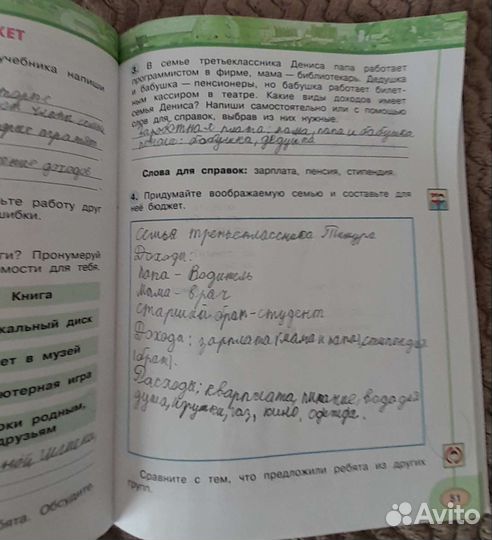 КЕТ
учебника напиши
те работу друг
шибки.
ги? Пронумеруй
мости для тебя.
Книга
кальный диск
ет в музей
ютерная игра
рки родным,
друзьям
бята. Обсудите
3. В семье третьеклассника Дениса папа работает
программистом в фирме, мама — библиотекарь. Дедушка
и бабушка — пенсионеры, но бабушка работает билет-
ным кассиром в театре. Какие виды доходов имеет
семья Дениса? Напиши самостоятельно или с помощью
слов для справок, выбрав из них нужные.
заработная плата: мама, папа и бабушка
бабушка, дедушка
Слова для справок: зарплата, пенсия, стипендия.
4. Придумайте воображаемую семью и составьте для
неё бюджет.
Семья третьеклассника Тимура
Доходы:
Папа - Водитель
Мама - врач
старший брат - студент
Доходы: зарплата (мама и папа), стипендия
(брат).
Расходы: кварплата, питание, вода, газ, кино, одежда.
Сравните с тем, что предложили ребята из других
групп.
51
Avito